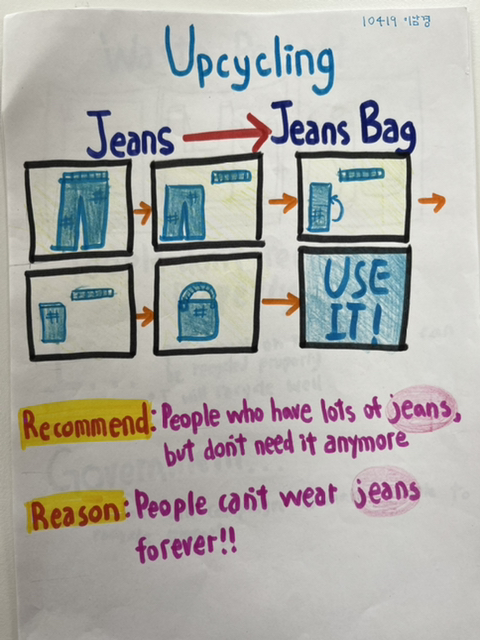 10419
Upcycling
Jeans → Jeans Bag
USE
IT!
Recommend: People who have lots of jeans,
but don't need it anymore
Reason: People can't wear jeans
forever!!